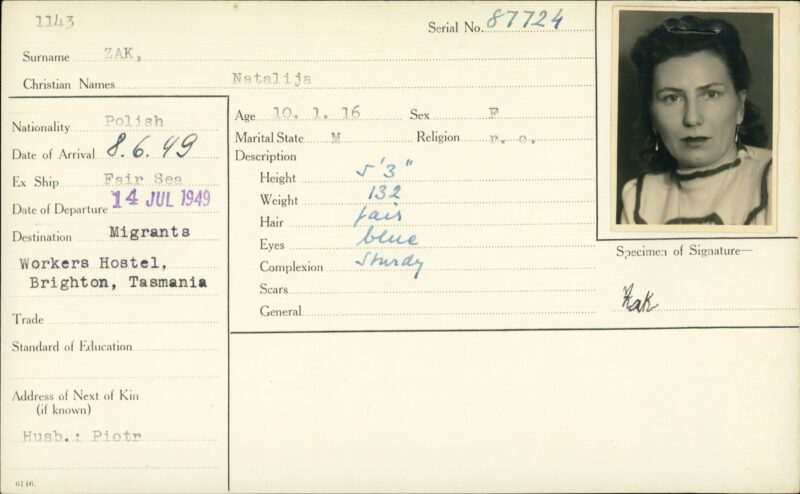 1143
Serial No. 87724
Surname ZAK,
Christian Names Natalija
Nationality Polish
Date of Arrival 8.6.49
Ex Ship Fair Sea
Date of Departure 14 JUL 1949
Destination Migrants
Workers Hostel,
Brighton, Tasmania
Trade
Standard of Education
Address of Next of Kin
(if known)
Husb.: Piotr
6146.
Age 10. 1. 16 Sex F
Marital State M Religion r. c.
Description
Height 5'3"
Weight 132
Hair fair
Eyes blue
Complexion sturdy
Scars
General
Specimen of Signature—
Zak